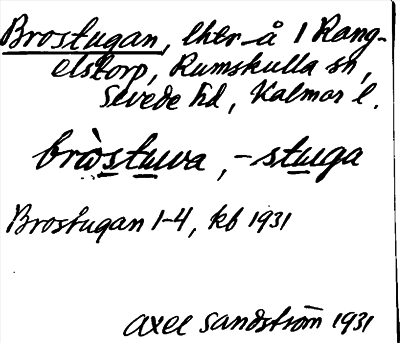 Brostugan, lhtr å 1 Rang-
elstorp, Rumskulla sn,
Sevede hd, Kalmar l.
bròstuva, -stuga
Brostugan 1-4, kb 1931
Axel Sandström 1931